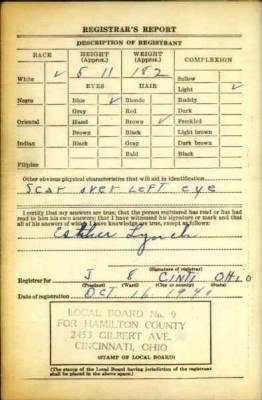 REGISTRAR'S REPORT
DESCRIPTION OF REGISTRANT
RACE HEIGHT (Approx.) WEIGHT (Approx.) COMPLEXION
White ✓ 5 11 182 Sallow
EYES HAIR Light ✓
Negro Blue ✓ Blonde Ruddy
Gray Red Dark
Oriental Hazel Brown ✓ Freckled
Brown Black Light brown
Indian Black Gray Dark brown
Bald Black
Filipino
Other obvious physical characteristics that will aid in identification
Scar over left eye
I certify that my answers are true; that the person registered has read or has had
read to him his own answers; that I have witnessed his signature or mark and that
all of his answers of which I have knowledge are true, except as follows:
Lynch
(Signature of registrar)
Registrar for J 8 CINTI OHIO
(Precinct) (Ward) (City or county) (State)
Date of registration OCT. 16 1940
LOCAL BOARD No. 9
FOR HAMILTON COUNTY
2453 GILBERT AVE.
CINCINNATI, OHIO
(STAMP OF LOCAL BOARD)
(The stamp of the Local Board having jurisdiction of the registrant
shall be placed in the above space.)